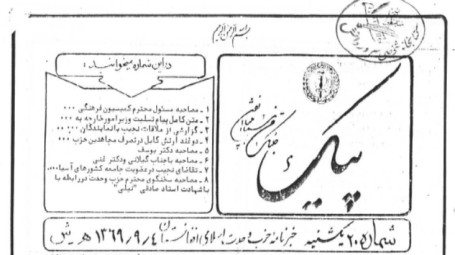 بسم الله الرحمن الرحیم
در این شماره میخوانید:
۱ - مصاحبه مسئول محترم کمیسیون فرهنگی ...
۲ - متن کامل پیام تسلیت وزیر امور خارجه به ...
۳ - گزارشی از ملاقات نجیب با نمایندگان ...
۴ - دولند ارتش کامل در تصرف مجاهدین حزب ...
۵ - مصاحبه دکتر یوسف
۶ - مصاحبه با جناب گیلانی و دکتر غنی
۷ - تقاضای نجیب در عضویت جامعه کشورهای آسیا ...
۸ - مصاحبه سخنگوی محترم حزب وحدت در رابطه با
شهادت استاد صادقی "نیلی"
پیک
شماره ۲۰ یکشنبه خبرنامه حزب وحدت اسلامی افغانستان ۱۳۶۹/۹/۴ هـ ش